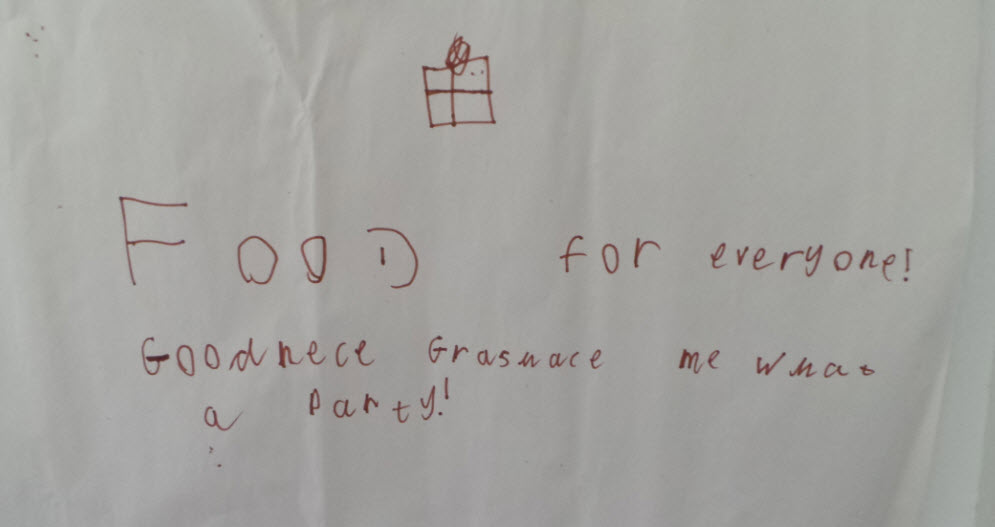 FOOD for everyone!
Goodnece Grasnace me what
a party!